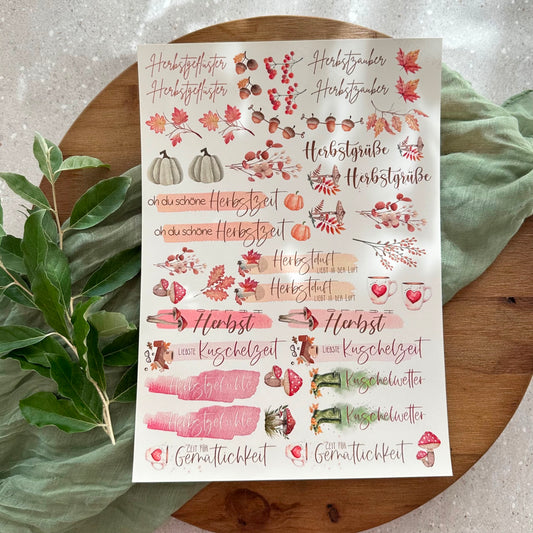 Herbstgeflüster
Herbstzauber
Herbstgeflüster
Herbstzauber
Herbstgrüße
Herbstgrüße
oh du schöne Herbstzeit
oh du schöne Herbstzeit
Herbstduft
LIEGT IN DER LUFT
Herbstduft
LIEGT IN DER LUFT
Herbst
Herbst
LIEBSTE Kuschelzeit
LIEBSTE Kuschelzeit
Herbstgefühle
Kuschelwetter
Herbstgefühle
Kuschelwetter
ZEIT FÜR
Gemütlichkeit
ZEIT FÜR
Gemütlichkeit